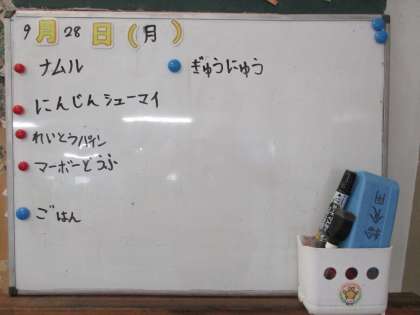 9月28日(月)
ナムル
ぎゅうにゅう
にんじんシューマイ
れいとうパイン
マーボーどうふ
ごはん
給食用